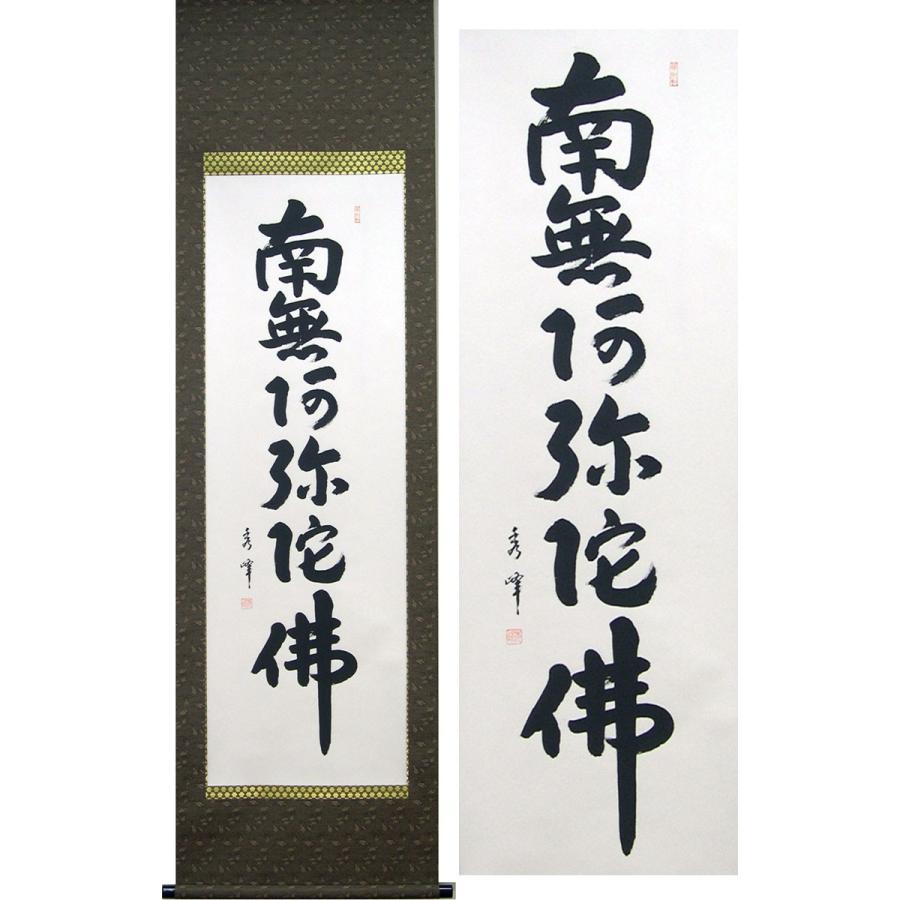 南無阿弥陀佛
秀峰
南無阿弥陀佛
秀峰